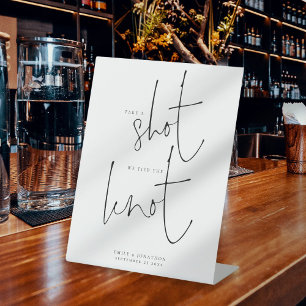 TAKE A
shot
WE TIED THE
knot
EMILY & JONATHON
SEPTEMBER 21 2024